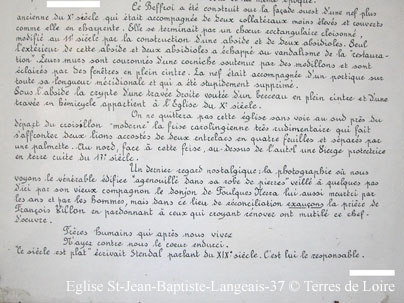 Le Beffroi a été construit sur la façade ouest d'une nef plus
ancienne du Xe siècle qui était accompagnée de deux collatéraux moins élevés et ouverts
comme elle en charpente. Elle se terminait par un chœur rectangulaire cloisonné,
modifié au 11e siècle par la construction d'une abside et de deux absidioles. Seul
l'extérieur de cette abside et deux absidioles a échappé au vandalisme de la restaura-
tion. Leurs murs sont couronnés d'une corniche soutenue par des modillons et sont
éclairés par des fenêtres en plein cintre. La nef était accompagnée d'un portique sur
toute sa longueur méridionale et qui a été stupidement supprimé.
Sous l'abside la crypte d'une travée droite voutée d'un berceau en plein cintre et d'une
travée en hémicycle appartient à l'Eglise du Xe siècle.
On ne quittera pas cette église sans voir au sud près du
départ du croisillon "moderne" la frise carolingienne très rudimentaire qui fait
s'affronter deux lions accostés de deux entrelacs en quatre feuilles et séparés par
une palmette. Au nord, face à cette frise, au-dessus de l'autel une Vierge protectrice
en terre cuite du 17e siècle.
Un dernier regard nostalgique: la photographie où nous
voyons le vénérable édifice "agenouillé dans sa robe de pierres" veillé à quelques pas
d'ici par son vieux compagnon le donjon de Foulques Nerra lui aussi meurtri par
les ans et par les hommes, mais dans ce lieu de réconciliation exauçons la prière de
François Villon en pardonnant à ceux qui croyant rénover ont mutilé ce chef-
d'oeuvre.
Frères humains qui après nous vivez
N'ayez contre nous le coeur endurci.
"le siècle est plat" écrivait Stendal parlant du XIXe siècle. C'est lui le responsable.
Eglise St-Jean-Baptiste-Langeais-37 © Terres de Loire